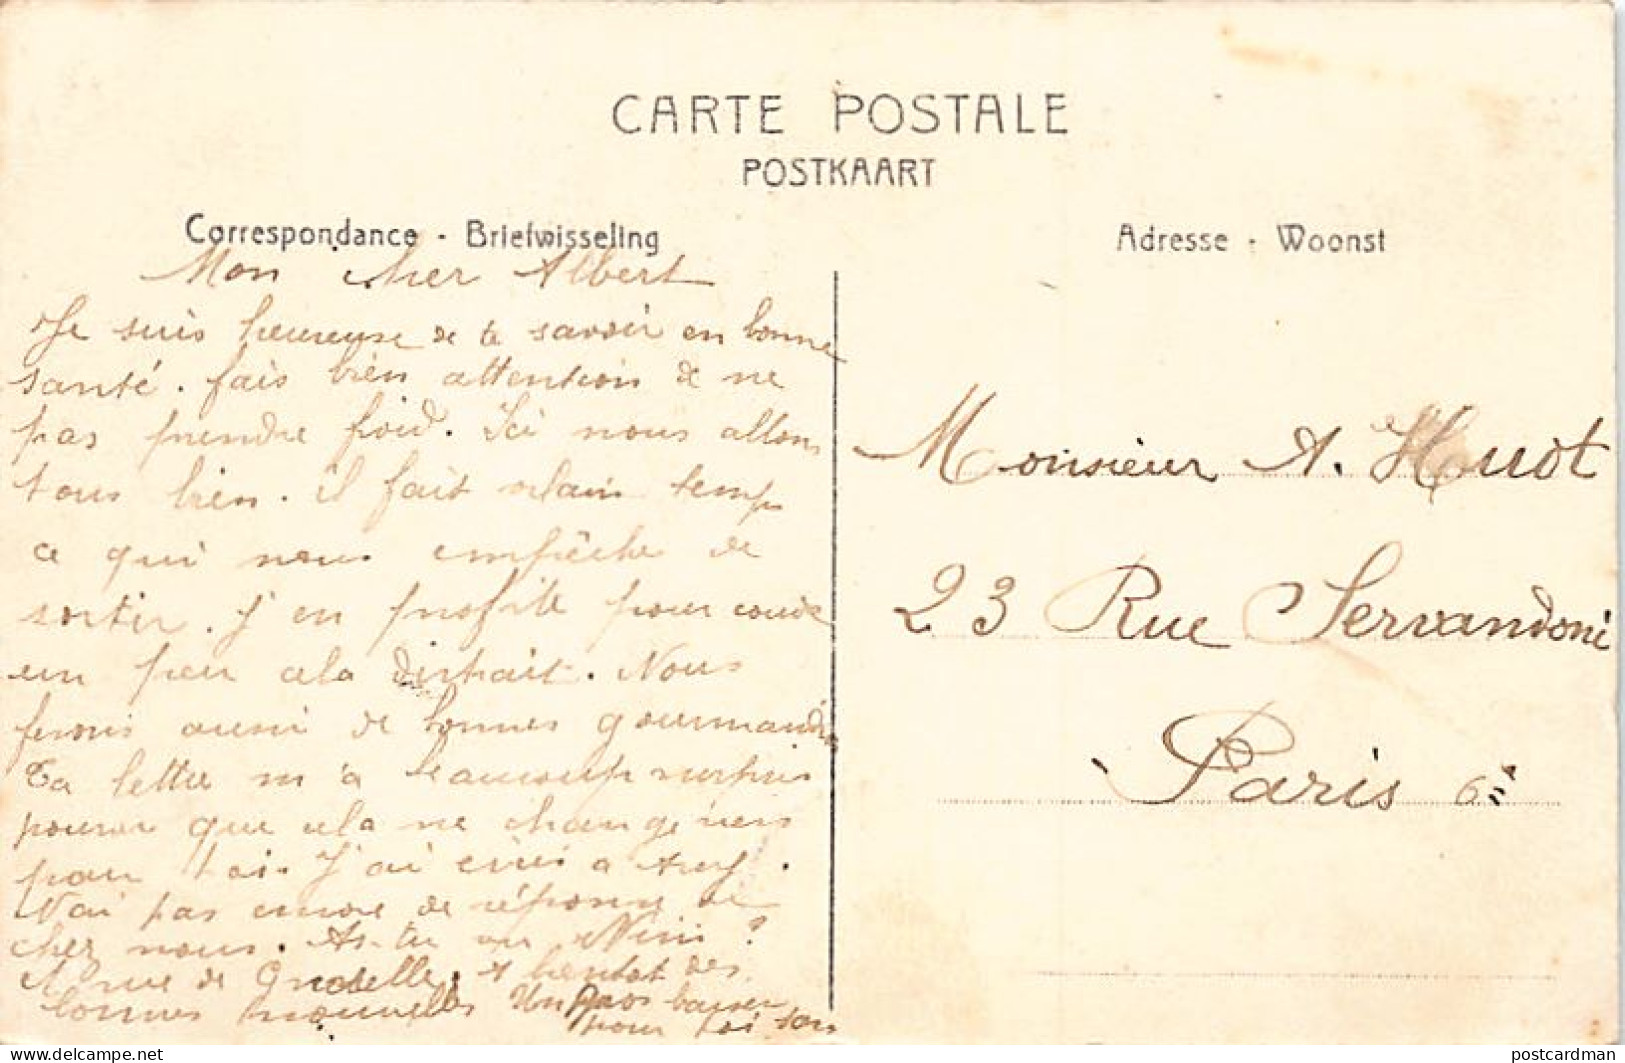 CARTE POSTALE
POSTKAART
Correspondance - Briefwisseling
Adresse - Woonst
Mon cher Albert
Je suis heureuse de te savoir en bonne
santé. fais bien attention de ne
pas prendre froid. Ici nous allons
tous bien. il fait vilain temps
ce qui nous empêche de
sortir. J'en profite pour coudre
un peu cela distrait. Nous
ferons aussi de bonnes gourmandises
Ta lettre m'a beaucoup surpris
pourvu que cela ne change rien
pour toi. J'ai écris a
N'ai pas encore de réponse de
chez nous. As-tu vu Nini ?
rue de A bientot des
bonnes nouvelles Un gros baiser
pour toi
Monsieur A. Huot
23 Rue Servandoni
Paris 6e
https://www.delcampe.net
postcardman